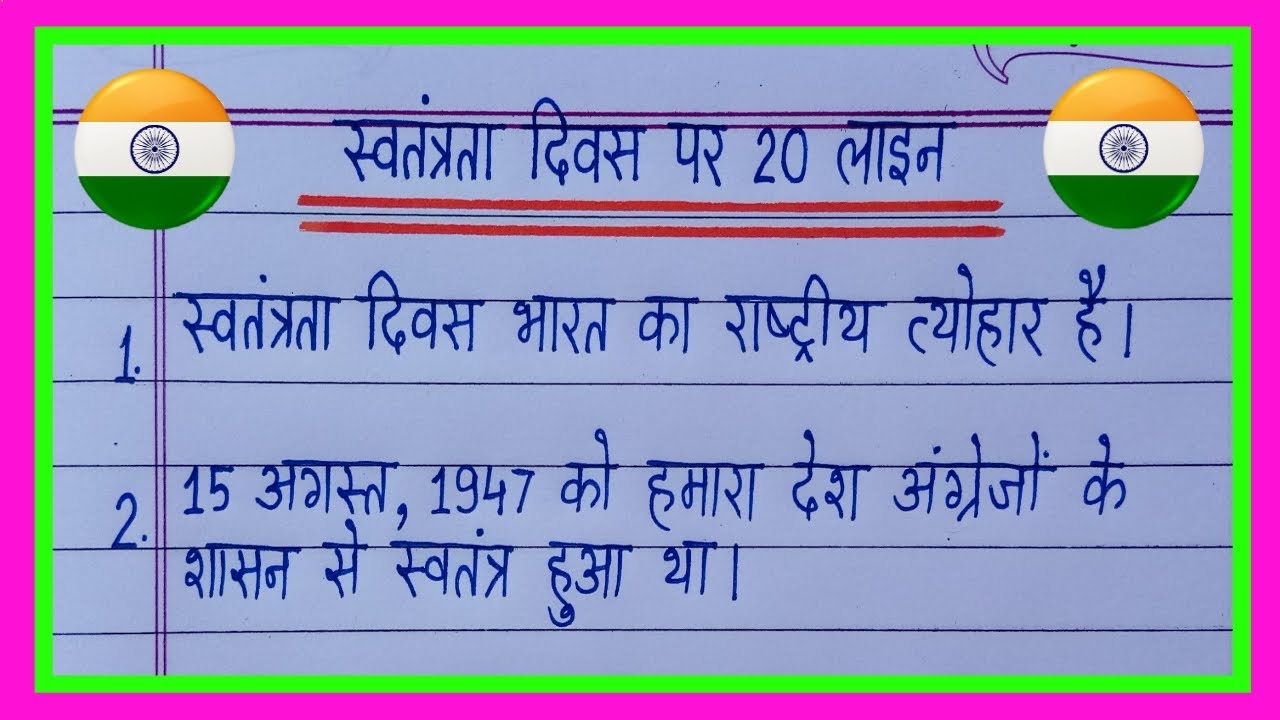 स्वतंत्रता दिवस पर 20 लाइन
1. स्वतंत्रता दिवस भारत का राष्ट्रीय त्योहार है।
2. 15 अगस्त, 1947 को हमारा देश अंग्रेजों के
शासन से स्वतंत्र हुआ था।